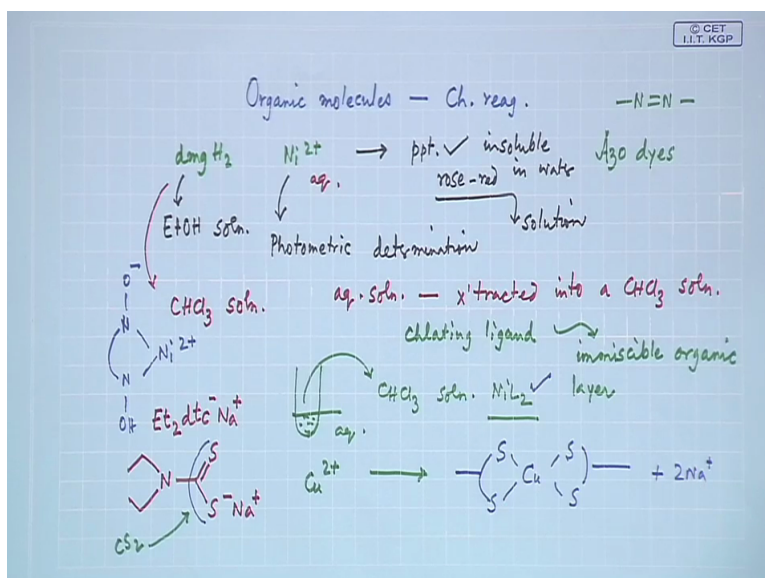 © CET
I.I.T. KGP
Organic molecules — Ch. reag.
—N=N—
dmgH2
Ni2+
aq.
→ ppt. ✓ insoluble
in water
rose-red
Azo dyes
EtOH soln.
solution
Photometric determination
CHCl3 soln.
aq. soln. — x'tracted into a CHCl3 soln.
chlating ligand
immiscible organic
layer
O-
N
Ni2+
N
OH
CHCl3 soln. NiL2 ✓
aq.
Et2dtc-Na+
S
N
S-Na+
CS2
Cu2+ →
S S
Cu
S S
+ 2Na+